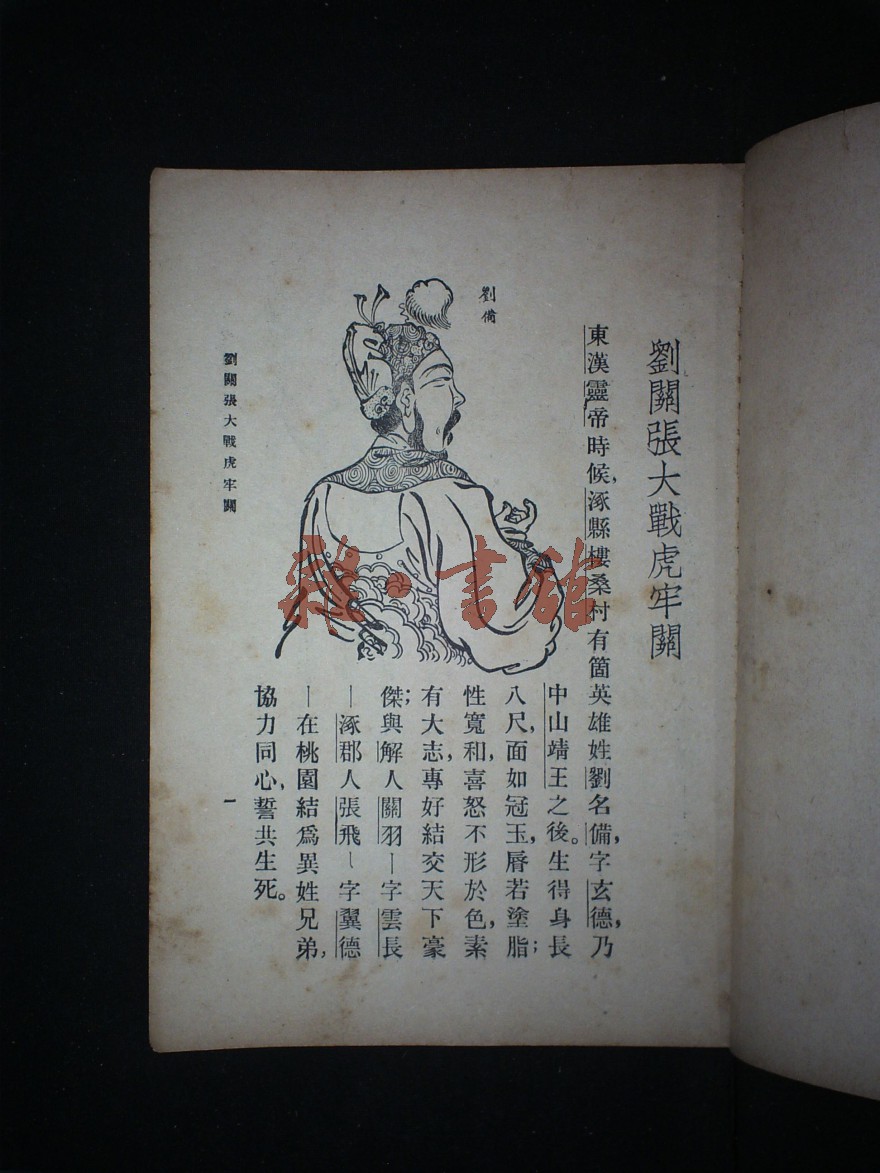 劉關張大戰虎牢關
東漢靈帝時候，涿縣樓桑村有箇英雄姓劉名備，字玄德，乃
中山靖王之後。生得身長
八尺，面如冠玉，脣若塗脂；
性寬和，喜怒不形於色，素
有大志，專好結交天下豪
傑；與解人關羽—字雲長
—涿郡人張飛—字翼德
—在桃園結爲異姓兄弟，
協力同心，誓共生死。
劉備
劉關張大戰虎牢關
一
雜·書館